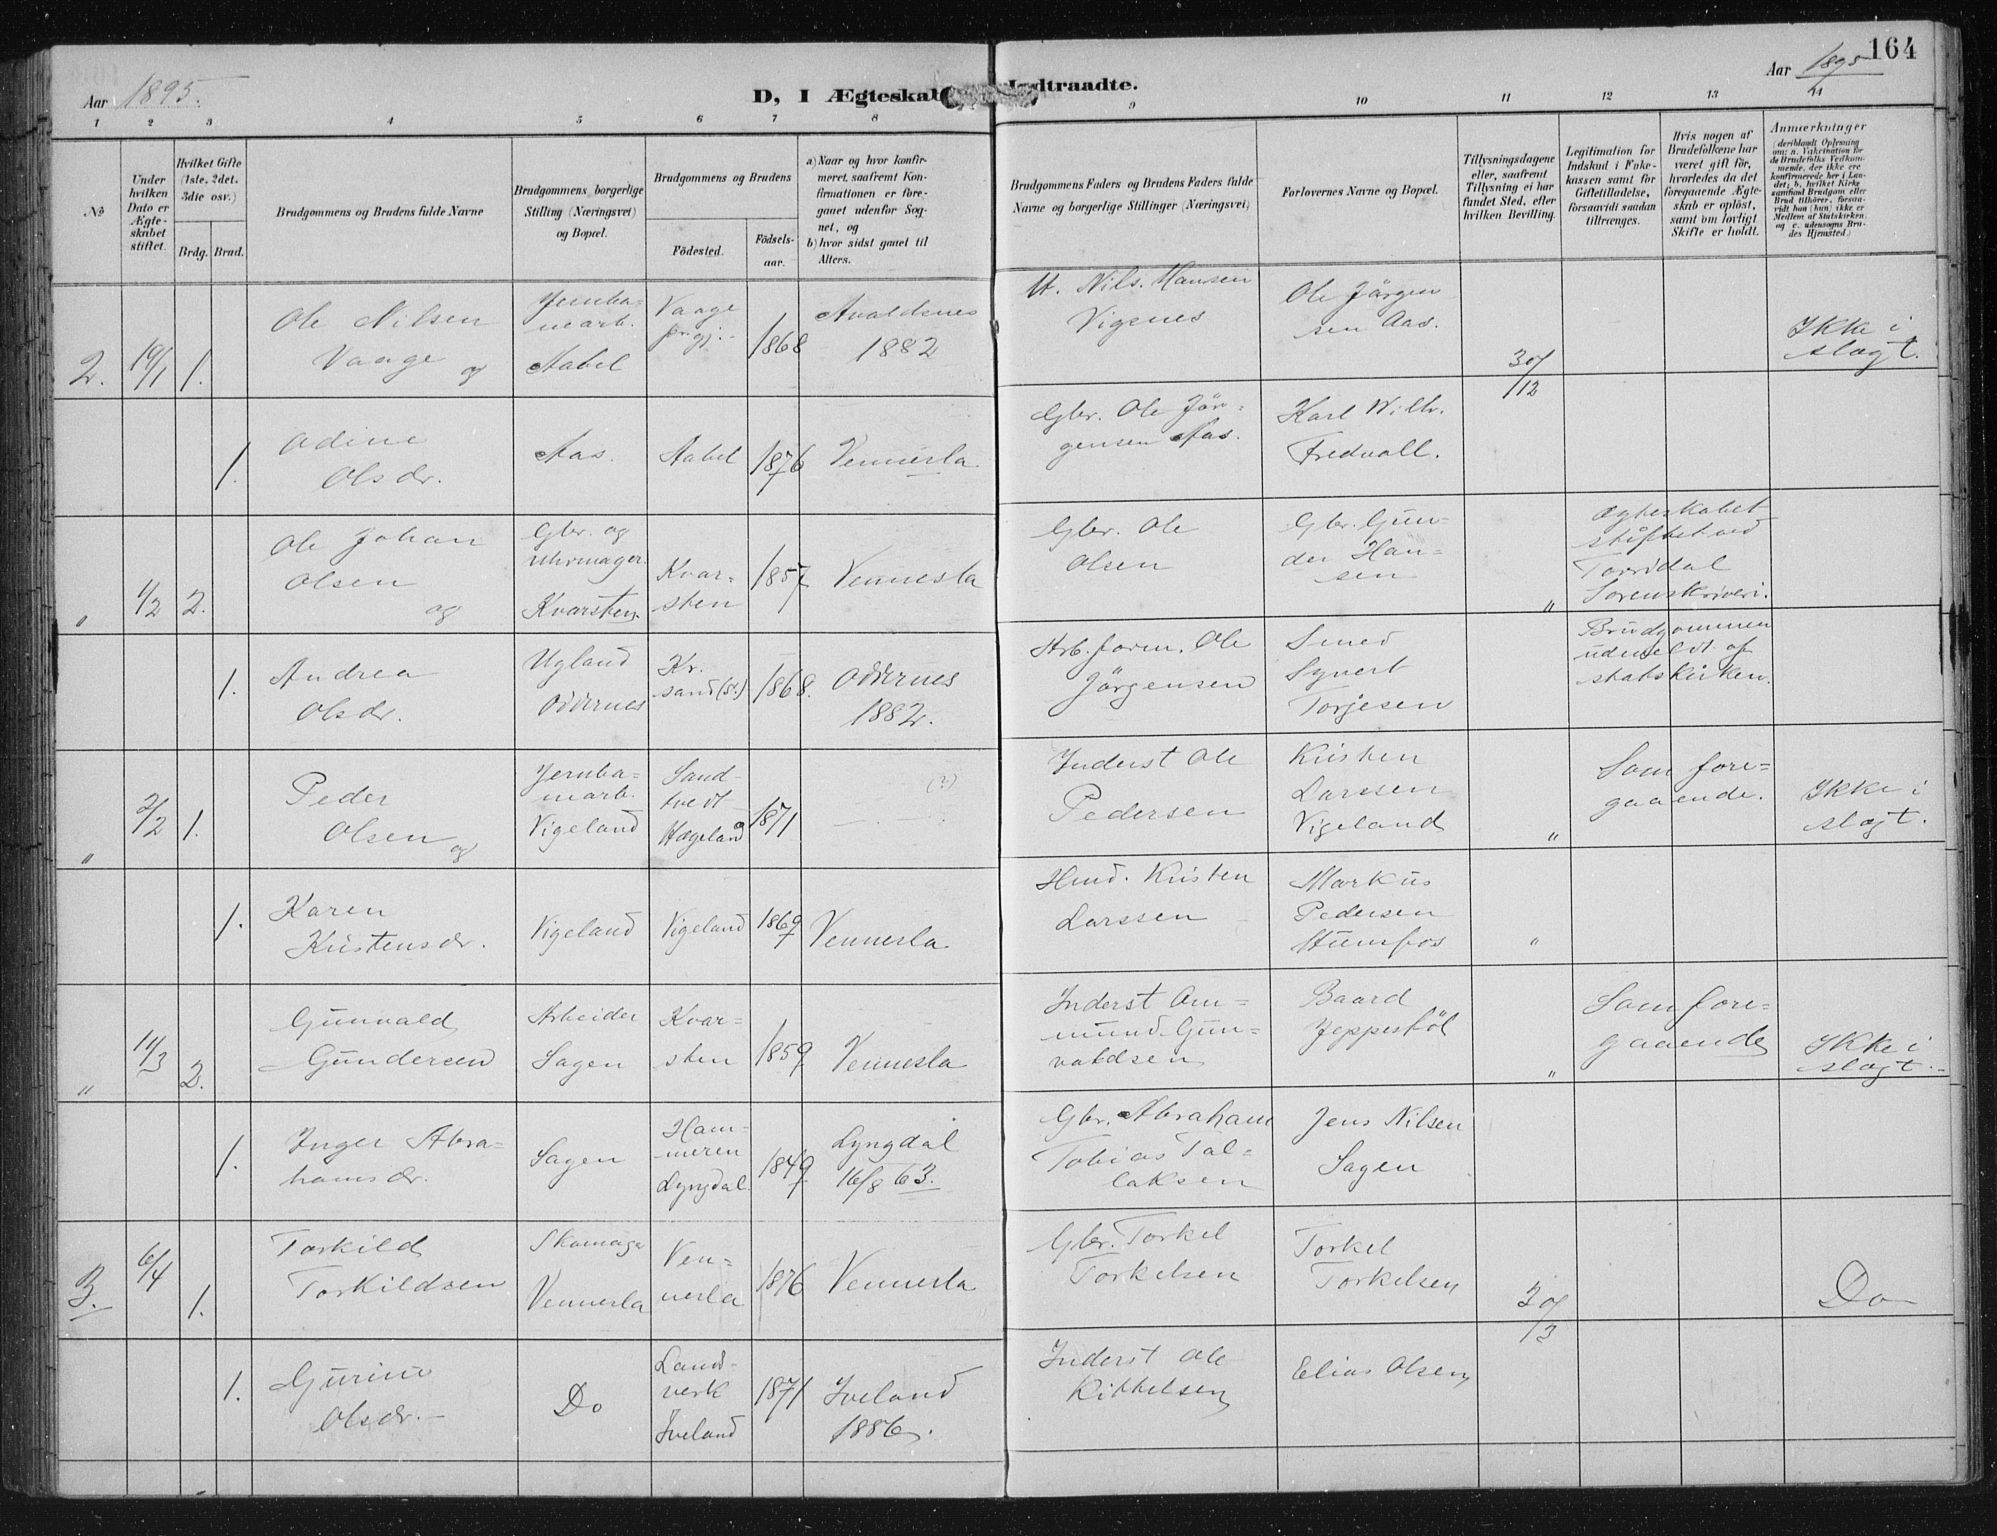 164
Aar 1895.
D, I Ægteskab Indtraadte.
Aar 1895
1 2 3 4 5 6 7 8 9 10 11 12 13 14
No
Under hvilken Dato er Ægteskabet stiftet.
Hvilket Gifte (1ste, 2det, 3die osv.)
Brdg. Brud.
Brudgommens og Brudens fulde Navne
Brudgommens borgerlige Stilling (Næringsvei) og Bopæl.
Brudgommens og Brudens
Födested.
Födselsaar.
a) Naar og hvor konfirmeret, saafremt Konfirmationen er foregaaet udenfor Sognet, og
b) hvor sidst gaaet til Alters.
Brudgommens Faders og Brudens Faders fulde Navne og borgerlige Stillinger (Næringsvei)
Forlovernes Navne og Bopæl.
Tillysningsdagene eller, saafremt Tillysning ei har fundet Sted, efter hvilken Bevilling.
Legitimation for Indskud i Enkekassen samt for Giftetilladelse, forsaavidt saadan tiltrænges.
Hvis nogen af Brudefolkene har været gift för, hvorledes da det foregaaende Ægteskab er oplöst, samt om lovligt Skifte er holdt.
Anmærkninger (deriblandt Oplysning om: a. Vakcination for de Brudefolks Vedkommende, der ikke ere konfirmerede her i Landet; b. hvilket Kirkesamfund Brudgom eller Brud tilhörer, forsaavidt han (hun) ikke er Medlem af Statskirken, og c. udensogns Brudes Hjemsted.)
2. 19/1 1. Ole Nilsen Vaage og
Jernbanearb. Aabel
Vaage
1868
Avaldsnes 1882
Nils Hansen Vigenes
Ole Jörgensen Aas.
30/12
Ikke i slægt.
1. Odine Olsdr.
Aas. Aabel 1876 Vennesla
Gbr. Ole Jörgensen Aas.
Karl Wilh. Fredvall.
" 1/2 2. Ole Johan Olsen og
Gbr. og uhrmager Kvarsten
Kvarsten 1857 Vennesla
Gbr. Ole Olsen
Gbr. Gunder Hansen
"
Ægteskabet stiftet ved Torridal Sorenskriveri.
1. Andrea Olsdr.
Ugland Oddernes
Kr.sand (S.) 1868.
Oddernes 1882.
Arb.form. Ole Jörgensen
Smed Syvert Torjesen
Brudgommen udmeldt af statskirken.
" 2/2 1. Peder Olsen og
Jernbanearb. Vigeland
Sandtvedt Hægeland
1871
(?)
Inderst Ole Pedersen
Kristen Larssen Vigeland
"
Som foregaaende.
Ikke i slægt.
1. Karen Kristensdr.
Vigeland Vigeland 1869 Vennesla
Hmd. Kristen Larssen
Markus Pedersen Hunsfos
"
" 11/3 2. Gunvald Gundersen
Arbeider Sagen
Kvarsten 1859 Vennesla
Inderst Ommund Gunvaldsen
Baard Jeppestöl
"
Som foregaaende
Ikke i slægt.
1. Inger Abrahamsdr.
Sagen
Hammeren Lyngdal. 1849
Lyngdal 16/8 63.
Gbr. Abraham Tobias Tallaksen
Jens Nilsen Sagen
3. 6/4 1. Torkild Torkildsen
Skomager Vennesla
Vennesla 1876 Vennesla
Gbr. Torkel Torkelsen
Torkel Torkelsen
30/3
Do
1. Gurine Olsdr.
Do
Landverk Iveland 1871
Iveland 1886.
Inderst Ole Kittelsen
Elias Olsen